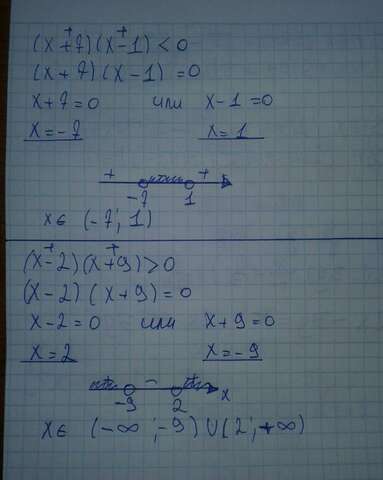 (x+7)(x-1)<0
(x+7)(x-1)=0
x+7=0 или x-1=0
x=-7 x=1
+ - +
-7 1
x∈ (-7; 1)
(x-2)(x+9)>0
(x-2)(x+9)=0
x-2=0 или x+9=0
x=2 x=-9
+ - +
-9 2 x
x∈ (-∞;-9)∪(2;+∞)